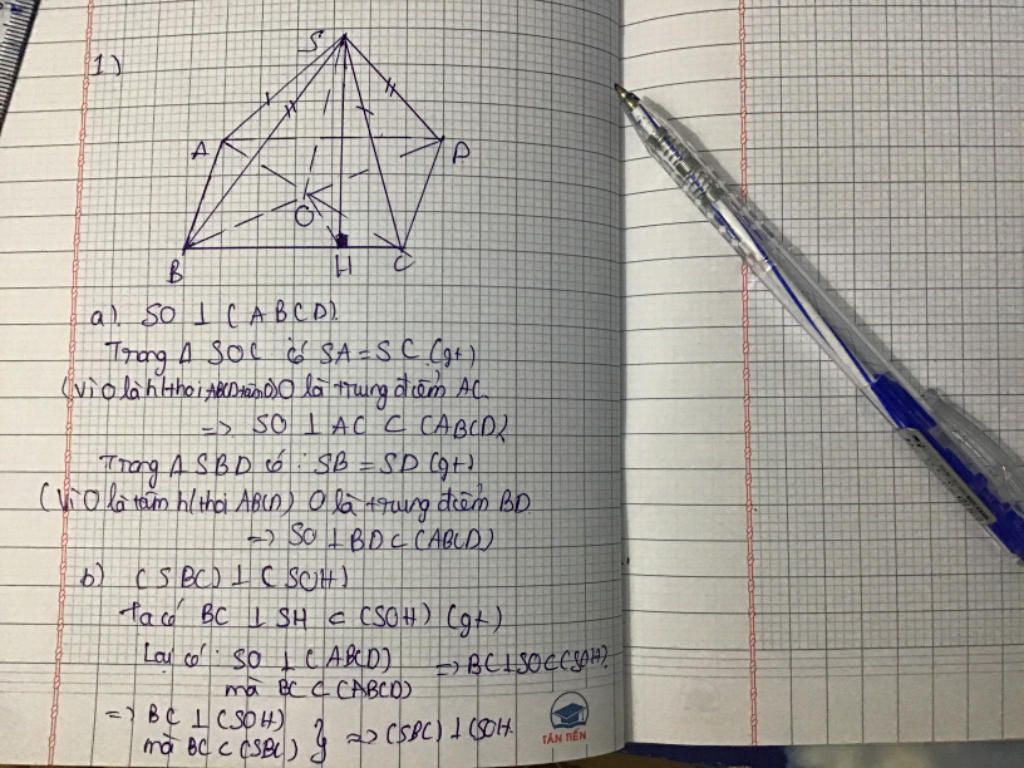 1)
S
A
D
O
B
H
C
a). SO ⊥ (ABCD).
Trong Δ SOC có SA = SC (gt)
(Vì O là h/thoi ABCD tâm O) O là trung điểm AC
=> SO ⊥ AC ⊂ (ABCD)
Trong Δ SBD có: SB = SD (gt)
(Vì O là tâm h/thoi ABCD) O là trung điểm BD
=> SO ⊥ BD ⊂ (ABCD)
b) (SBC) ⊥ (SOH)
Ta có BC ⊥ SH ⊂ (SOH) (gt)
Lại có: SO ⊥ (ABCD) => BC ⊥ SO ⊂ (SOH).
mà BC ⊂ (ABCD)
=> BC ⊥ (SOH)
mà BC ⊂ (SBC) } => (SBC) ⊥ (SOH.
TÂN TIẾN